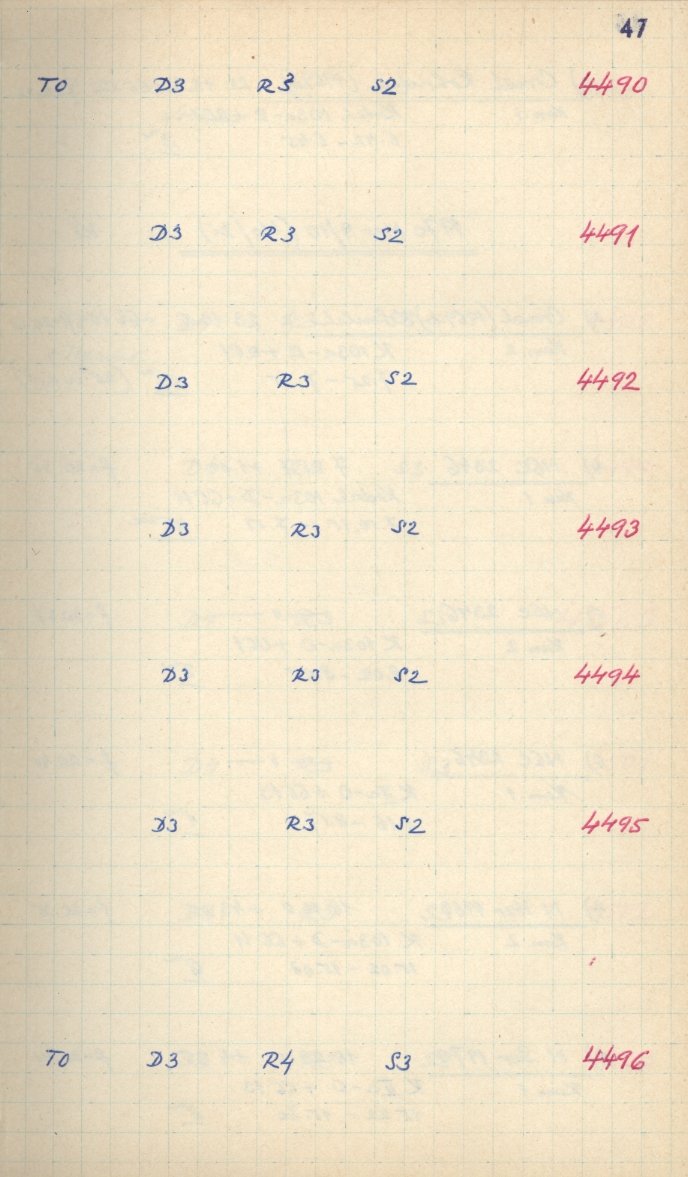 47
TO D3 R3 S2 4490
D3 R3 S2 4491
D3 R3 S2 4492
D3 R3 S2 4493
D3 R3 S2 4494
D3 R3 S2 4495
TO D3 R4 S3 4496